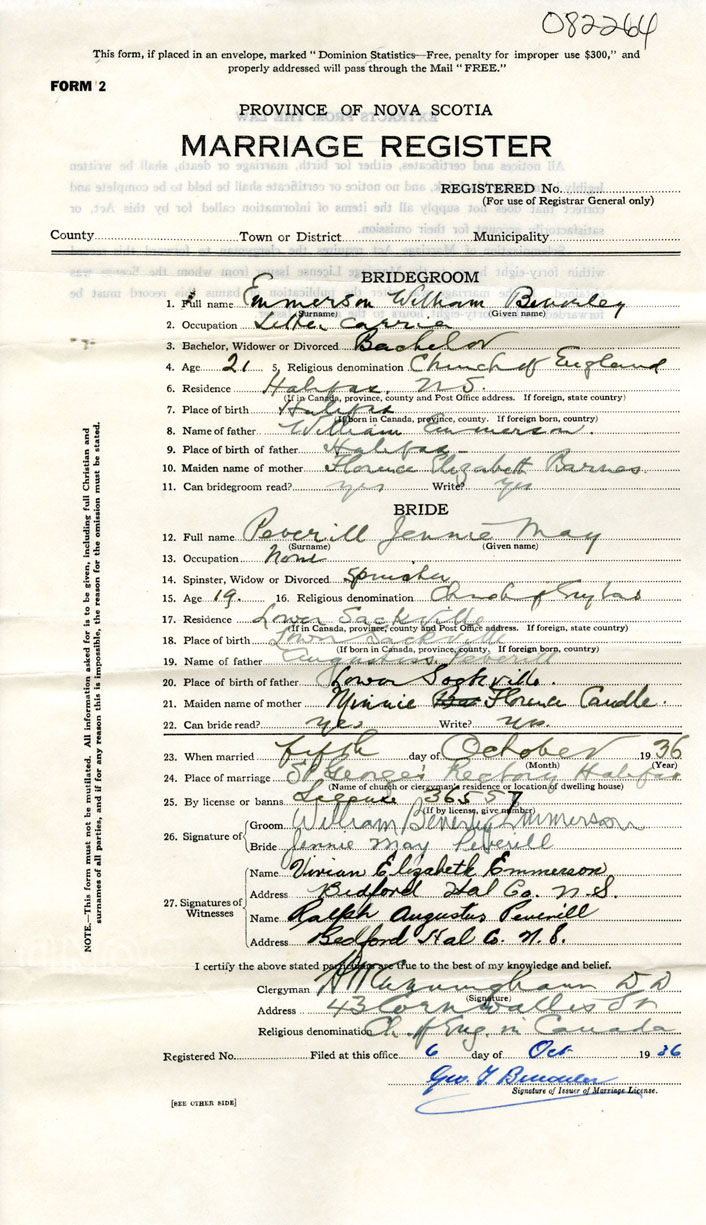 082264
This form, if placed in an envelope, marked "Dominion Statistics—Free, penalty for improper use $300," and
properly addressed will pass through the Mail "FREE."
FORM 2
PROVINCE OF NOVA SCOTIA
MARRIAGE REGISTER
REGISTERED No.
(For use of Registrar General only)
County Town or District Municipality
BRIDEGROOM
1. Full name Emmerson William Beverley
(Surname) (Given name)
2. Occupation Letter Carrier
3. Bachelor, Widower or Divorced Bachelor
4. Age 21 5. Religious denomination Church of England
6. Residence Halifax, N.S.
(If in Canada, province, county and Post Office address. If foreign, state country)
7. Place of birth Halifax
(If born in Canada, province, county. If foreign born, country)
8. Name of father William Emmerson.
9. Place of birth of father Halifax
10. Maiden name of mother Florence Elizabeth Barnes
11. Can bridegroom read? yes Write? yes
BRIDE
12. Full name Peverill Jennie May
(Surname) (Given name)
13. Occupation None
14. Spinster, Widow or Divorced Spinster
15. Age 19. 16. Religious denomination Church of England
17. Residence Lower Sackville
(If in Canada, province, county and Post Office address. If foreign, state country)
18. Place of birth Lower Sackville
(If born in Canada, province, county. If foreign born, country)
19. Name of father Augustus Peverill
20. Place of birth of father Lower Sackville.
21. Maiden name of mother Minnie Florence Caudle.
22. Can bride read? yes Write? yes.
23. When married fifth day of October 1936
(Month) (Year)
24. Place of marriage St George's Rectory Halifax
(Name of church or clergyman's residence or location of dwelling house)
25. By license or banns License 36557
(If by license, give number)
26. Signature of
Groom William Beverley Emmerson
Bride Jennie May Peverill
27. Signatures of Witnesses
Name Vivian Elizabeth Emmerson
Address Bedford Hal Co. N.S.
Name Ralph Augustus Peverill
Address Bedford Hal C. N.S.
I certify the above stated particulars are true to the best of my knowledge and belief.
Clergyman Cunningham D D
(Signature)
Address 43 Cornwallis St
Religious denomination Ch. of Eng. in Canada
Registered No. Filed at this office 6 day of Oct 1936
Geo. T.
Signature of Issuer of Marriage License.
[SEE OTHER SIDE]
NOTE.—This form must not be mutilated. All information asked for is to be given, including full Christian and
surnames of all parties, and if for any reason this is impossible, the reason for the omission must be stated.